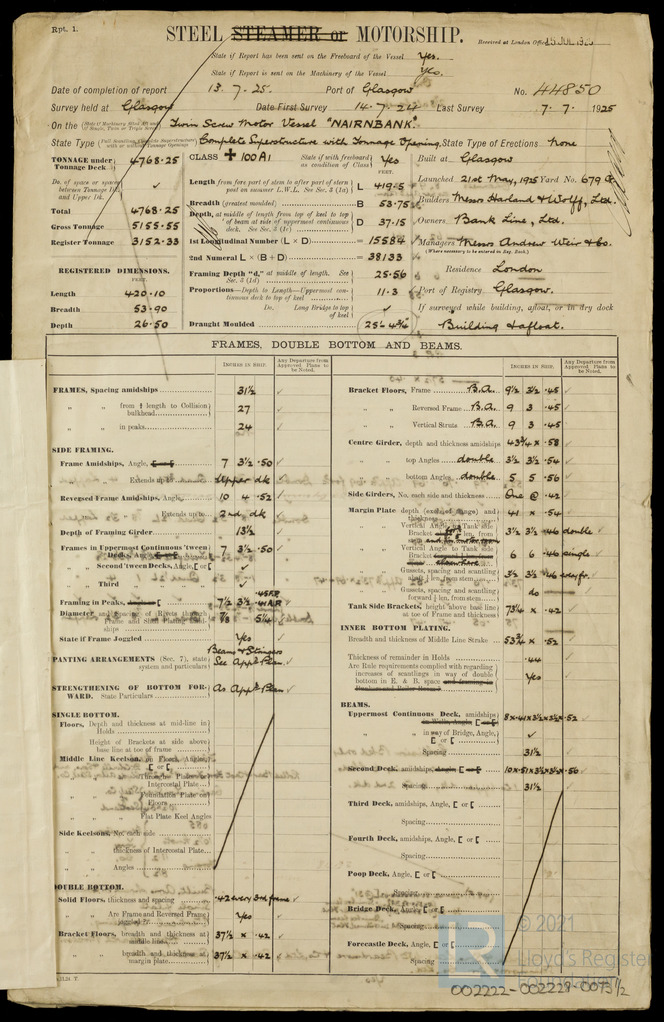 Rpt. 1.
STEEL STEAMER or MOTORSHIP.
Received at London Office
State if Report has been sent on the Freeboard of the Vessel Yes.
State if Report is sent on the Machinery of the Vessel Yes.
Date of completion of report 13.7.25. Port of Glasgow No. 44850
Survey held at Glasgow Date First Survey 14.7.24 Last Survey 7.7.1925
On the Twin Screw Motor Vessel "NAIRNBANK"
State Type Complete Superstructure with Tonnage Opening. State Type of Erections None
TONNAGE under Tonnage Deck 4768.25
Do. of space or spaces between Tonnage Dk. and Upper Dk.
Total 4768.25
Gross Tonnage 5155.55
Register Tonnage 3152.33
REGISTERED DIMENSIONS.
FEET.
Length 420.10
Breadth 53.90
Depth 26.50
CLASS + 100A1 State if with freeboard as condition of Class Yes
FEET.
Length from fore part of stem to after part of stern post on summer L.W.L. See Sec. 3 (1a) L 419.5
Breadth (greatest moulded) B 53.75
Depth, at middle of length from top of keel to top of beam at side of uppermost continuous deck. See Sec. 3 (1c) D 37.15
1st Longitudinal Number (L × D) = 15584
2nd Numeral L × (B + D) = 38133
Framing Depth "d," at middle of length. See Sec. 3 (1d) 25.56
Proportions—Depth to Length—Uppermost continuous deck to top of keel 11.3
Do. Long Bridge to top of keel
Draught Moulded
Built at Glasgow
Launched 21st May, 1925 Yard No. 679 G
Builders Messrs Harland & Wolff, Ltd.
Owners Bank Line, Ltd.
Managers Messrs Andrew Weir & Co.
(Where necessary to be entered in Reg. Book.)
Residence London
Port of Registry Glasgow.
If surveyed while building, afloat, or in dry dock
Building & afloat.
FRAMES, DOUBLE BOTTOM AND BEAMS.
INCHES IN SHIP.
Any Departure from Approved Plans to be Noted.
INCHES IN SHIP.
Any Departure from Approved Plans to be Noted.
FRAMES, Spacing amidships 31½
" " from ⅕ length to Collision bulkhead 27
" " in peaks 24
SIDE FRAMING.
Frame Amidships, Angle, 7 3½ .50
" " Extends up to Upper dk
Reversed Frame Amidships, Angle 10 4 .52
" " Extends up to 2nd dk
Depth of Framing Girder 13½
Frames in Uppermost Continuous 'tween Decks, 7 3½ .50
" Second 'tween Decks, Angle, [ or [
" Third " " "
Framing in Peaks, 7½ 3½
Diameter and spacing of Rivets through Frame and Shell Plating amidships 7/8 5¼
State if Frame Joggled Yes
PANTING ARRANGEMENTS (Sec. 7), state system and particulars Beams & Stringers See Appd Plan
STRENGTHENING OF BOTTOM FORWARD. State Particulars As Appd Plan
SINGLE BOTTOM.
Floors, Depth and thickness at mid-line in Holds
Height of Brackets at side above base line at toe of frame
Middle Line Keelson, on Floors, Angles, [ or [
" " Through Plate or Intercostal Plate
" " Foundation Plate on Floors
" " Flat Plate Keel Angles
Side Keelsons, No. each side
" thickness of Intercostal Plate
" Angles
DOUBLE BOTTOM.
Solid Floors, thickness and spacing .42 every 3rd frame
" Are Frame and Reversed Frame Yes
Bracket Floors, breadth and thickness at middle line 37½ × .42
" breadth and thickness at margin plate 37½ × .42
Bracket Floors, Frame B.A. 9½ 3½ .45
" " Reversed Frame B.A. 9 3 .45
" " Vertical Struts B.A. 9 3 .45
Centre Girder, depth and thickness amidships 43¾ × .58
" top Angles double 3½ 3½ .54
" bottom Angles double 5 5 .56
Side Girders, No. each side and thickness One @ .42
Margin Plate depth (exclusive of flange) and thickness 41 × .54
" Vertical Angle to Tank side Bracket 3½ 3½ .46 double
" Vertical Angle to Tank side Bracket 6 6 .46 single
" Gussets, spacing and scantling abaft ¼ len. from stem 3½ 3½ .46
" Gussets, spacing and scantling forward ¼ len. from stem do
Tank Side Brackets, height above base line at toe of Frame and thickness 73¼ × .42
INNER BOTTOM PLATING.
Breadth and thickness of Middle Line Strake 53¾ × .52
Thickness of remainder in Holds .44
Are Rule requirements complied with regarding increases of scantlings in way of double bottom in E. & B. space Yes
BEAMS.
Uppermost Continuous Deck, amidships 8 × 4 × 3½ × 3½ × .52
" " in way of Bridge, Angle, [ or [
Spacing 31½
Second Deck, amidships, 10 × 3½ × 3½ × .50
Spacing 31½
Third Deck, amidships, Angle, [ or [
Spacing
Fourth Deck, amidships, Angle, [ or [
Spacing
Poop Deck, Angle, [ or [
Spacing
Bridge Deck, Angle, [ or [
Spacing
Forecastle Deck, Angle, [ or [
Spacing
© 2021
Lloyd's Register
FOUNDATION
LR
002222-002229-0073 1/2